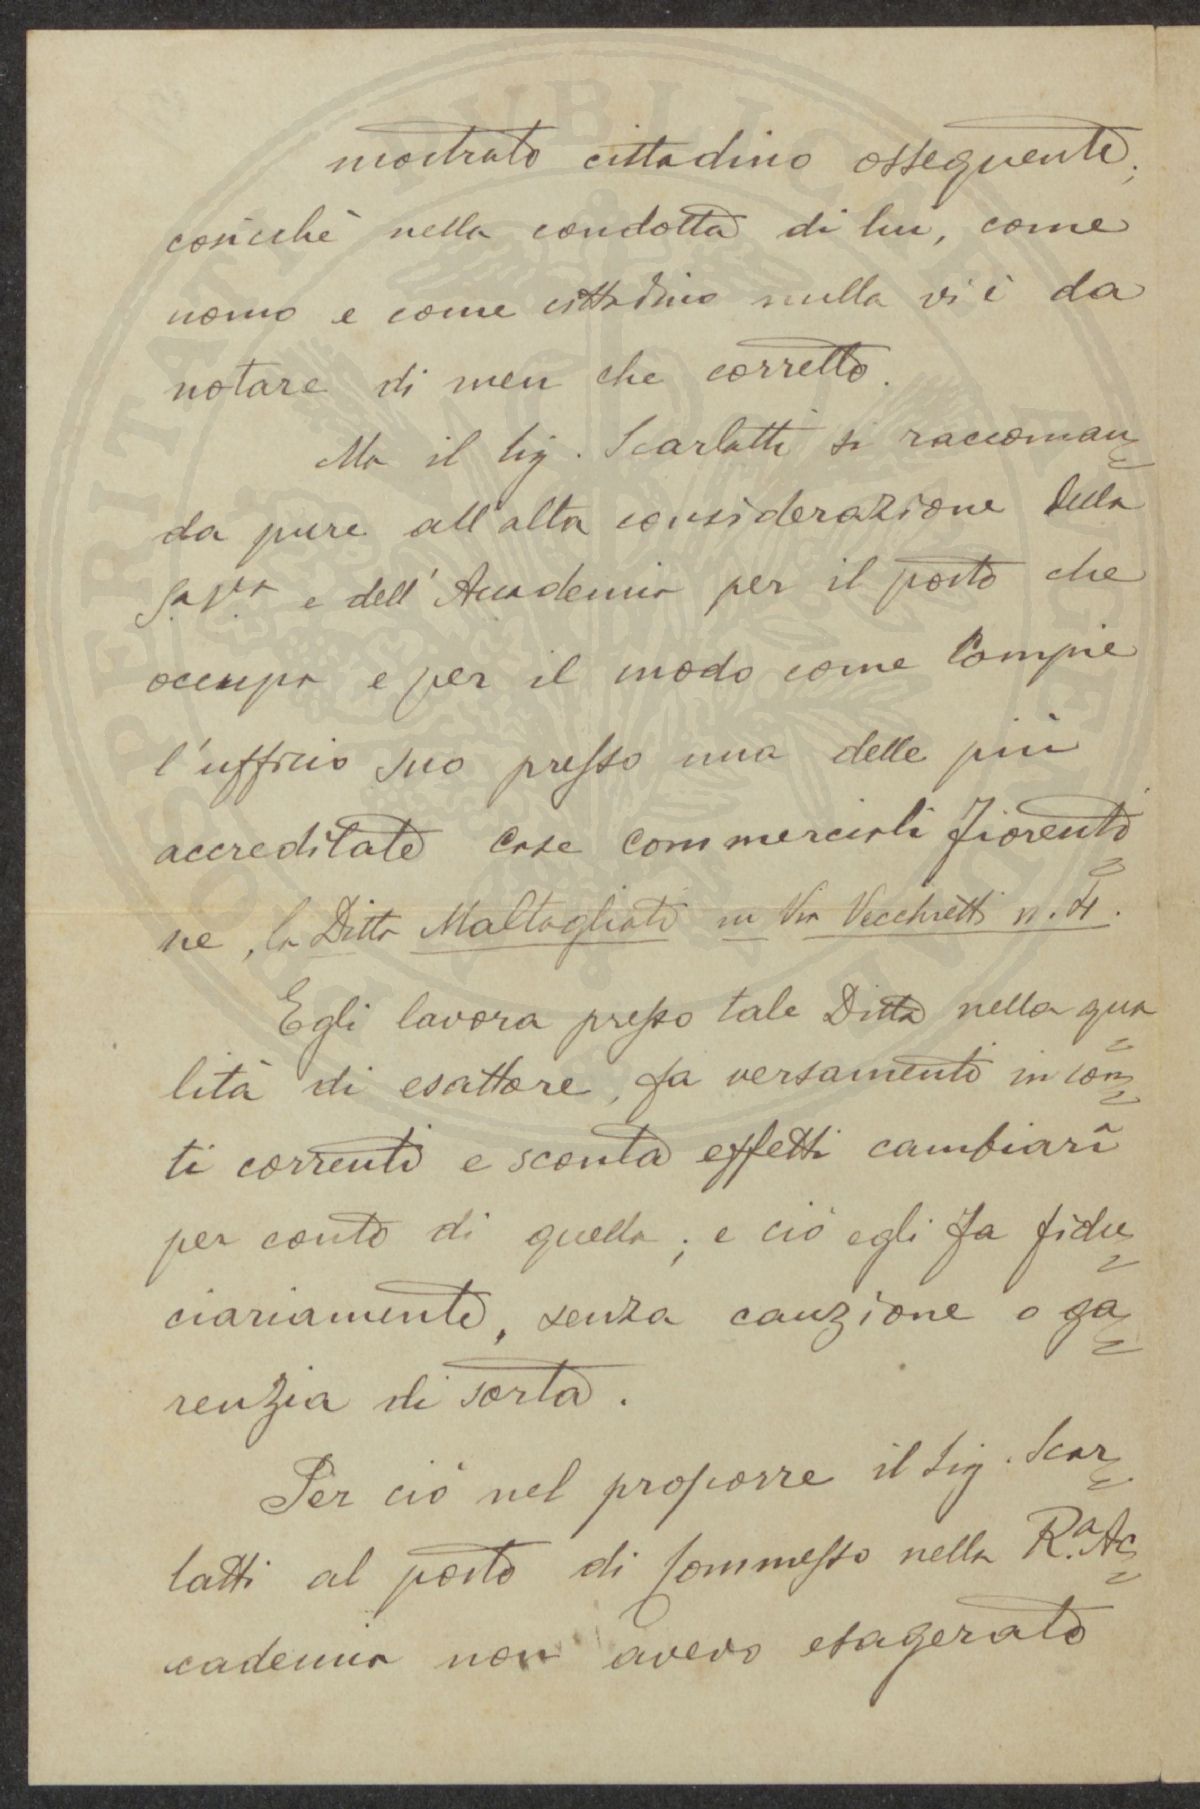 mostrato cittadino ossequente;
cosicchè nella condotta di lui, come
uomo e come cittadino nulla vi è da
notare di men che corretto.
Ma il Sig. Scarlatti si raccoman=
da pure all'alta considerazione della
S.a V.ra e dell'Accademia per il posto che
occupa e per il modo come compie
l'ufficio suo presso una delle più
accreditate case commerciali fiorenti=
ne, la Ditta Maltagliati in Via Vecchietti n. 4.
Egli lavora presso tale Ditta nella qua=
lità di esattore, fa versamenti in con=
ti correnti e sconta effetti cambiarî
per conto di quella; e ciò egli fa fidu=
ciariamente, senza cauzione o ga=
renzia di sorta.
Per ciò nel proporre il Sig. Scar=
latti al posto di Commesso nella R.a Ac=
cademia non avevo esagerato
PROSPERITATI PUBLICAE AUGENDAE